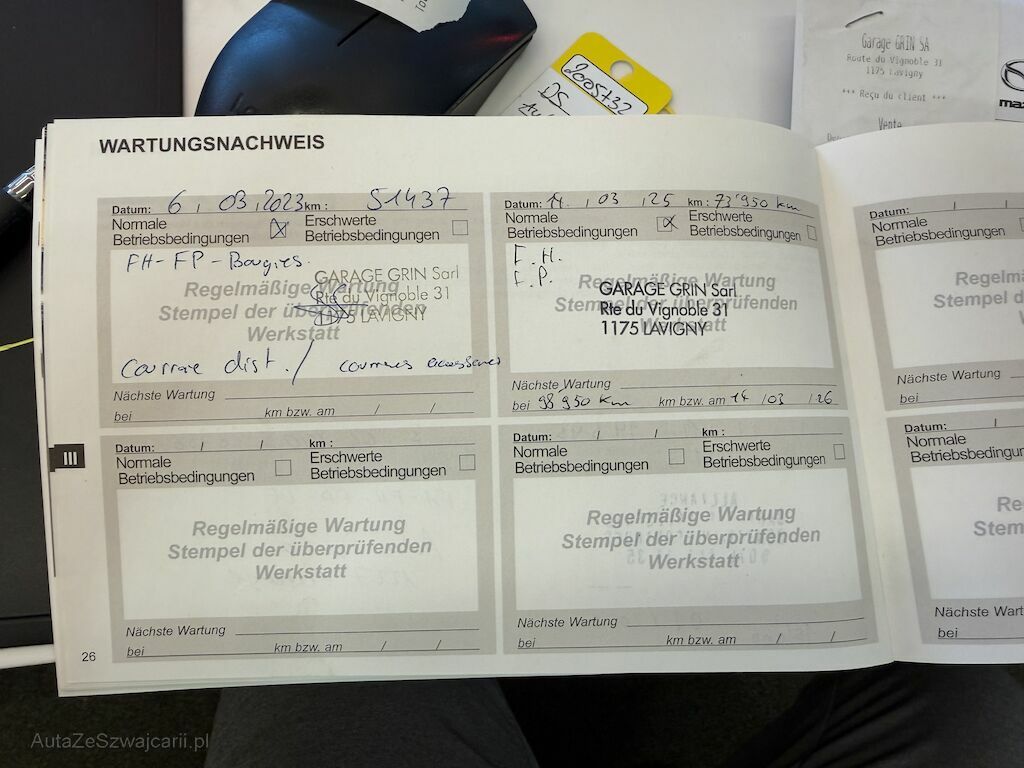 Garage GRIN SA
Route du Vignoble 31
1175 Lavigny
*** Reçu du client ***
Vente
2005732
DS
WARTUNGSNACHWEIS
Datum: 6 , 03 , 2023 km : 51437
Normale Betriebsbedingungen ☒ Erschwerte Betriebsbedingungen ☐
FH-FP-Bougies.
Regelmäßige Wartung
Stempel der überprüfenden
Werkstatt
GARAGE GRIN Sarl
Rte du Vignoble 31
1175 LAVIGNY
Courroie dist. / courroies accessoires
Nächste Wartung
bei km bzw. am / /
Datum: 14 , 03 , 25 km : 73'950 km
Normale Betriebsbedingungen ☒ Erschwerte Betriebsbedingungen ☐
F.H.
F.P.
Regelmäßige Wartung
Stempel der überprüfenden
Werkstatt
GARAGE GRIN Sarl
Rte du Vignoble 31
1175 LAVIGNY
Nächste Wartung
bei 98'950 km km bzw. am 14 / 03 / 26
Datum: / /
Normale
Betriebsbedingung
Nächste Wartung
bei
III
Datum: / / km :
Normale Betriebsbedingungen ☐ Erschwerte Betriebsbedingungen ☐
Regelmäßige Wartung
Stempel der überprüfenden
Werkstatt
Nächste Wartung
bei km bzw. am / /
Datum: / / km :
Normale Betriebsbedingungen ☐ Erschwerte Betriebsbedingungen ☐
Regelmäßige Wartung
Stempel der überprüfenden
Werkstatt
Nächste Wartung
bei km bzw. am / /
Datum: /
Normale
Nächste Wartung
bei
26
AutaZeSzwajcarii.pl